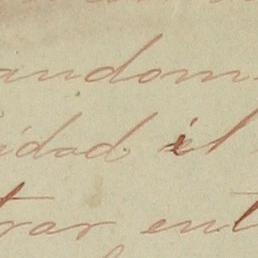 andom
idad él
rar ent